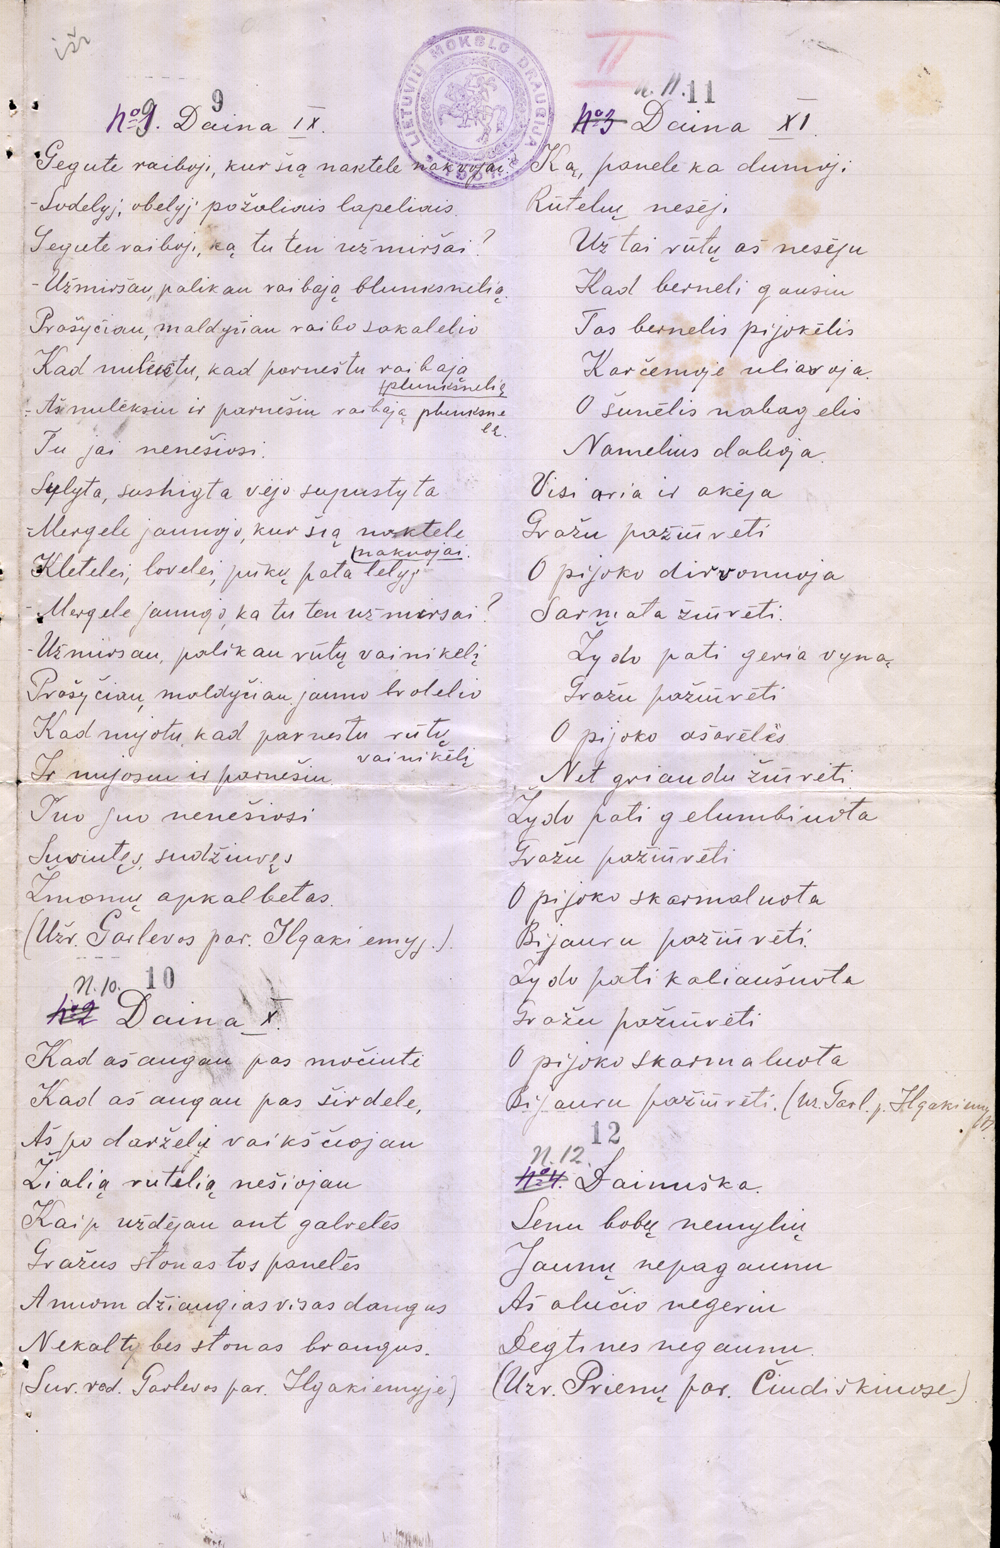 9
No 9. Daina IX.
Gegute raiboji, kur šią naktele nakvojai.
- Sodelyj, obelyj požaliais lapeliais.
Gegute raiboji, ką tu ten užmiršai?
- Užmiršau, palikau raibąją blunksnelią.
Prašyčiau, maldyčiau raibo sakalelio
Kad nulėktu, kad parneštu raibąja
plunkšnelią
- Aš nulėksiu ir parnešiu raibąją plunksne
lę.
Tu jai nenešiosi.
Sulyta, sushigta vėjo supustyta
- Mergele jaunojo, kur šią naktele
nakvojai.
Kletelei, lovelei, pūkų patalelyj
- Mergele jaunojo, ka tu ten užmirsai?
- Užmirsau, palikau rūtų vainikelį
Prašyčiau, maldyčiau jauno brolelio
Kad nujotu, kad parnestu rūtų
vainikėlį
Ir nujosiu ir parnešiu
Tuo juo nenešiosi
Suvintęs, sudžiuvęs
Žmonių apkalbetas.
(Užr. Garlevos par. Ilgakiemyj.).
N. 10. 10
No 2 Daina X.
Kad aš augau pas močiute
Kad aš augau pas širdele,
Aš po darželį vaikščiojau
Žialią rutėlią nešiojau
Kaip uždėjau ant galvelės
Gražus stonas tos panelės
Anuom džiaugias visas dangus
Nekaltybes stonas brangus.
(Sur. rad. Garlevos par. Ilgakiemyje)
LIETUVIŲ MOKSLO DRAUGIJA
II
N. 11. 11
No 3 Daina XI.
Ką, panele ka dumoji
Rūtelių nesėji
Už tai rūtų aš nesėju
Kad berneli gausiu
Tas bernelis pijokėlis
Karčemoje uliavoja.
O šunėlis nabagelis
Namelius daboja.
Visi aria ir akėja
Gražu pažiūrėti
O pijoko dirvonuoja
Sarmata žiūrėti.
Žydo pati geria vyną
Gražu pažiūrėti
O pijoko ašarėlės
Net griaudu žiūrėti
Žydo pati gelumbinota
Gražu pažiūrėti
O pijoko skarmaluota
Bijauru pažiūrėti.
Žydo pati kaliaušuota
Gražu pažiūrėti
O pijoko skarmaluota
Bijauru pažiūrėti. (Uz. Garl. p. Ilgakiemyj)
12
N. 12.
No 4. Dainuška.
Senu bobų nemyliu
Jaunų nepagaunu
Aš alučio negeriu
Degtines negaunu.
(Užr. Prienų par. Čiudiškiuose)